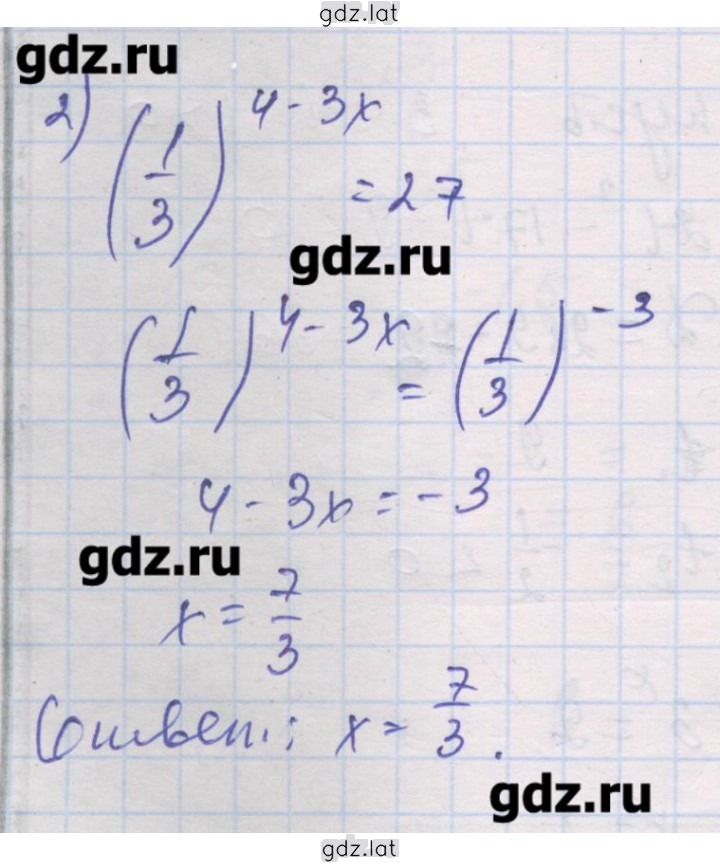 gdz.lat
gdz.ru
2) (1/3)^(4-3x) = 27
gdz.ru
(1/3)^(4-3x) = (1/3)^(-3)
4-3x=-3
gdz.ru
x = 7/3
Ответ: x = 7/3.
gdz.ru
gdz.lat